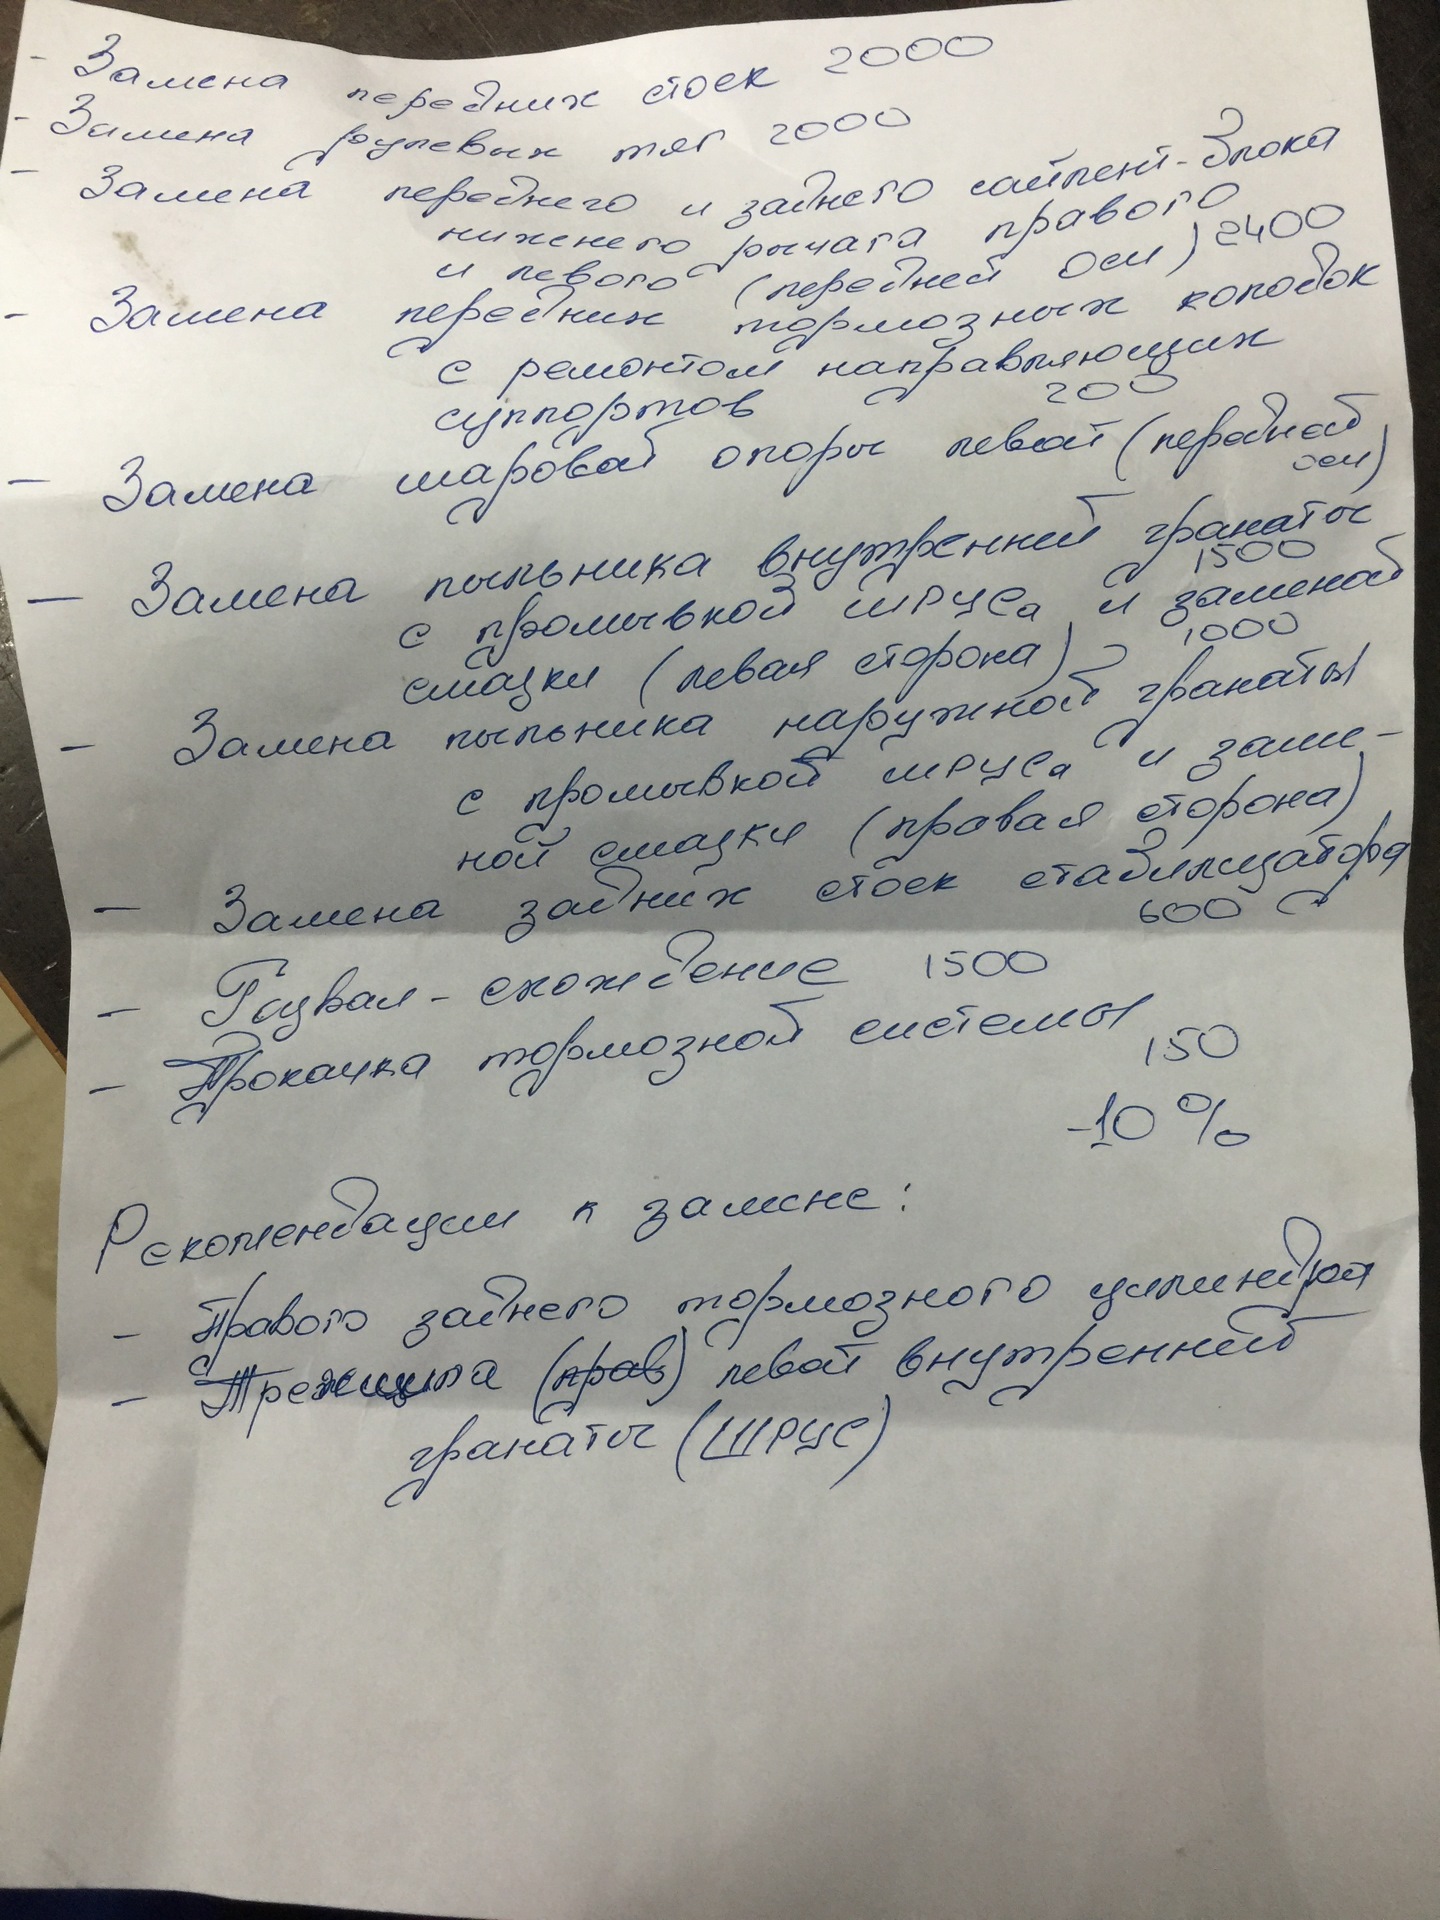 - Замена передних стоек 2000
- Замена рулевых тяг 2000
- Замена переднего и заднего сайлент-блока
нижнего рычага правого
и левого (передней оси) 2400
- Замена передних тормозных колодок
с ремонтом направляющих
суппортов 200
- Замена шаровой опоры левой (передней
оси)
- Замена пыльника внутренней гранаты
1500
с промывкой ШРУСа и заменой
смазки (левая сторона) 1000
- Замена пыльника наружной гранаты
с промывкой ШРУСа и заме-
ной смазки (правая сторона)
- Замена задних стоек стабилизатора
600
- Развал-схождение 1500
- Прокачка тормозной системы
150
-10%
Рекомендации к замене:
- Правого заднего тормозного цилиндра
- (прав) левой внутренней
гранаты (ШРУС)